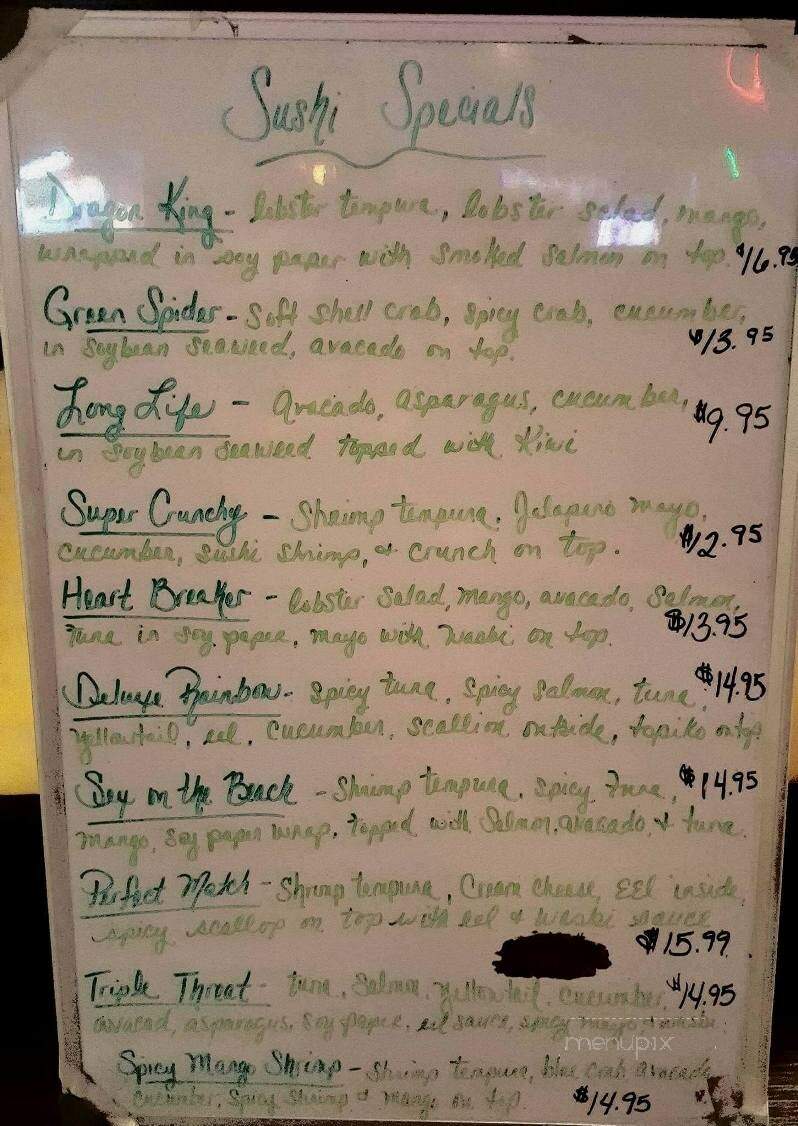 Sushi Specials
Dragon King - lobster tempura, lobster salad, mango,
wrapped in soy paper with smoked salmon on top. $16.95
Green Spider - Soft shell crab, spicy crab, cucumber,
in soybean seaweed, avacado on top. $13.95
Long Life - Avacado, asparagus, cucumber, $9.95
in soybean seaweed topped with Kiwi
Super Crunchy - Shrimp tempura, Jalapeno mayo,
cucumber, sushi shrimp, & crunch on top. $12.95
Heart Breaker - lobster salad, mango, avacado, Salmon,
tuna in soy paper, mayo with wasbi on top. $13.95
Deluxe Rainbow - spicy tuna, spicy salmon, tuna, $14.95
yellowtail, eel, cucumber, scallion outside, topiko on top
Sex on the Beach - Shrimp tempura, spicy tuna, $14.95
mango, soy paper wrap, topped with Salmon, avacado, & tuna.
Perfect Match - Shrimp tempura, Cream cheese, EEl inside,
spicy scallop on top with eel & wasbi sauce
$15.99
Triple Threat - tuna, Salmon, yellowtail, cucumber, $14.95
avacad, asparagus, soy paper, eel sauce, spicy mayo,
menupix
Spicy Mango Shrimp - Shrimp tempura, blue crab avacado
cucumber, spicy shrimp & mango on top $14.95